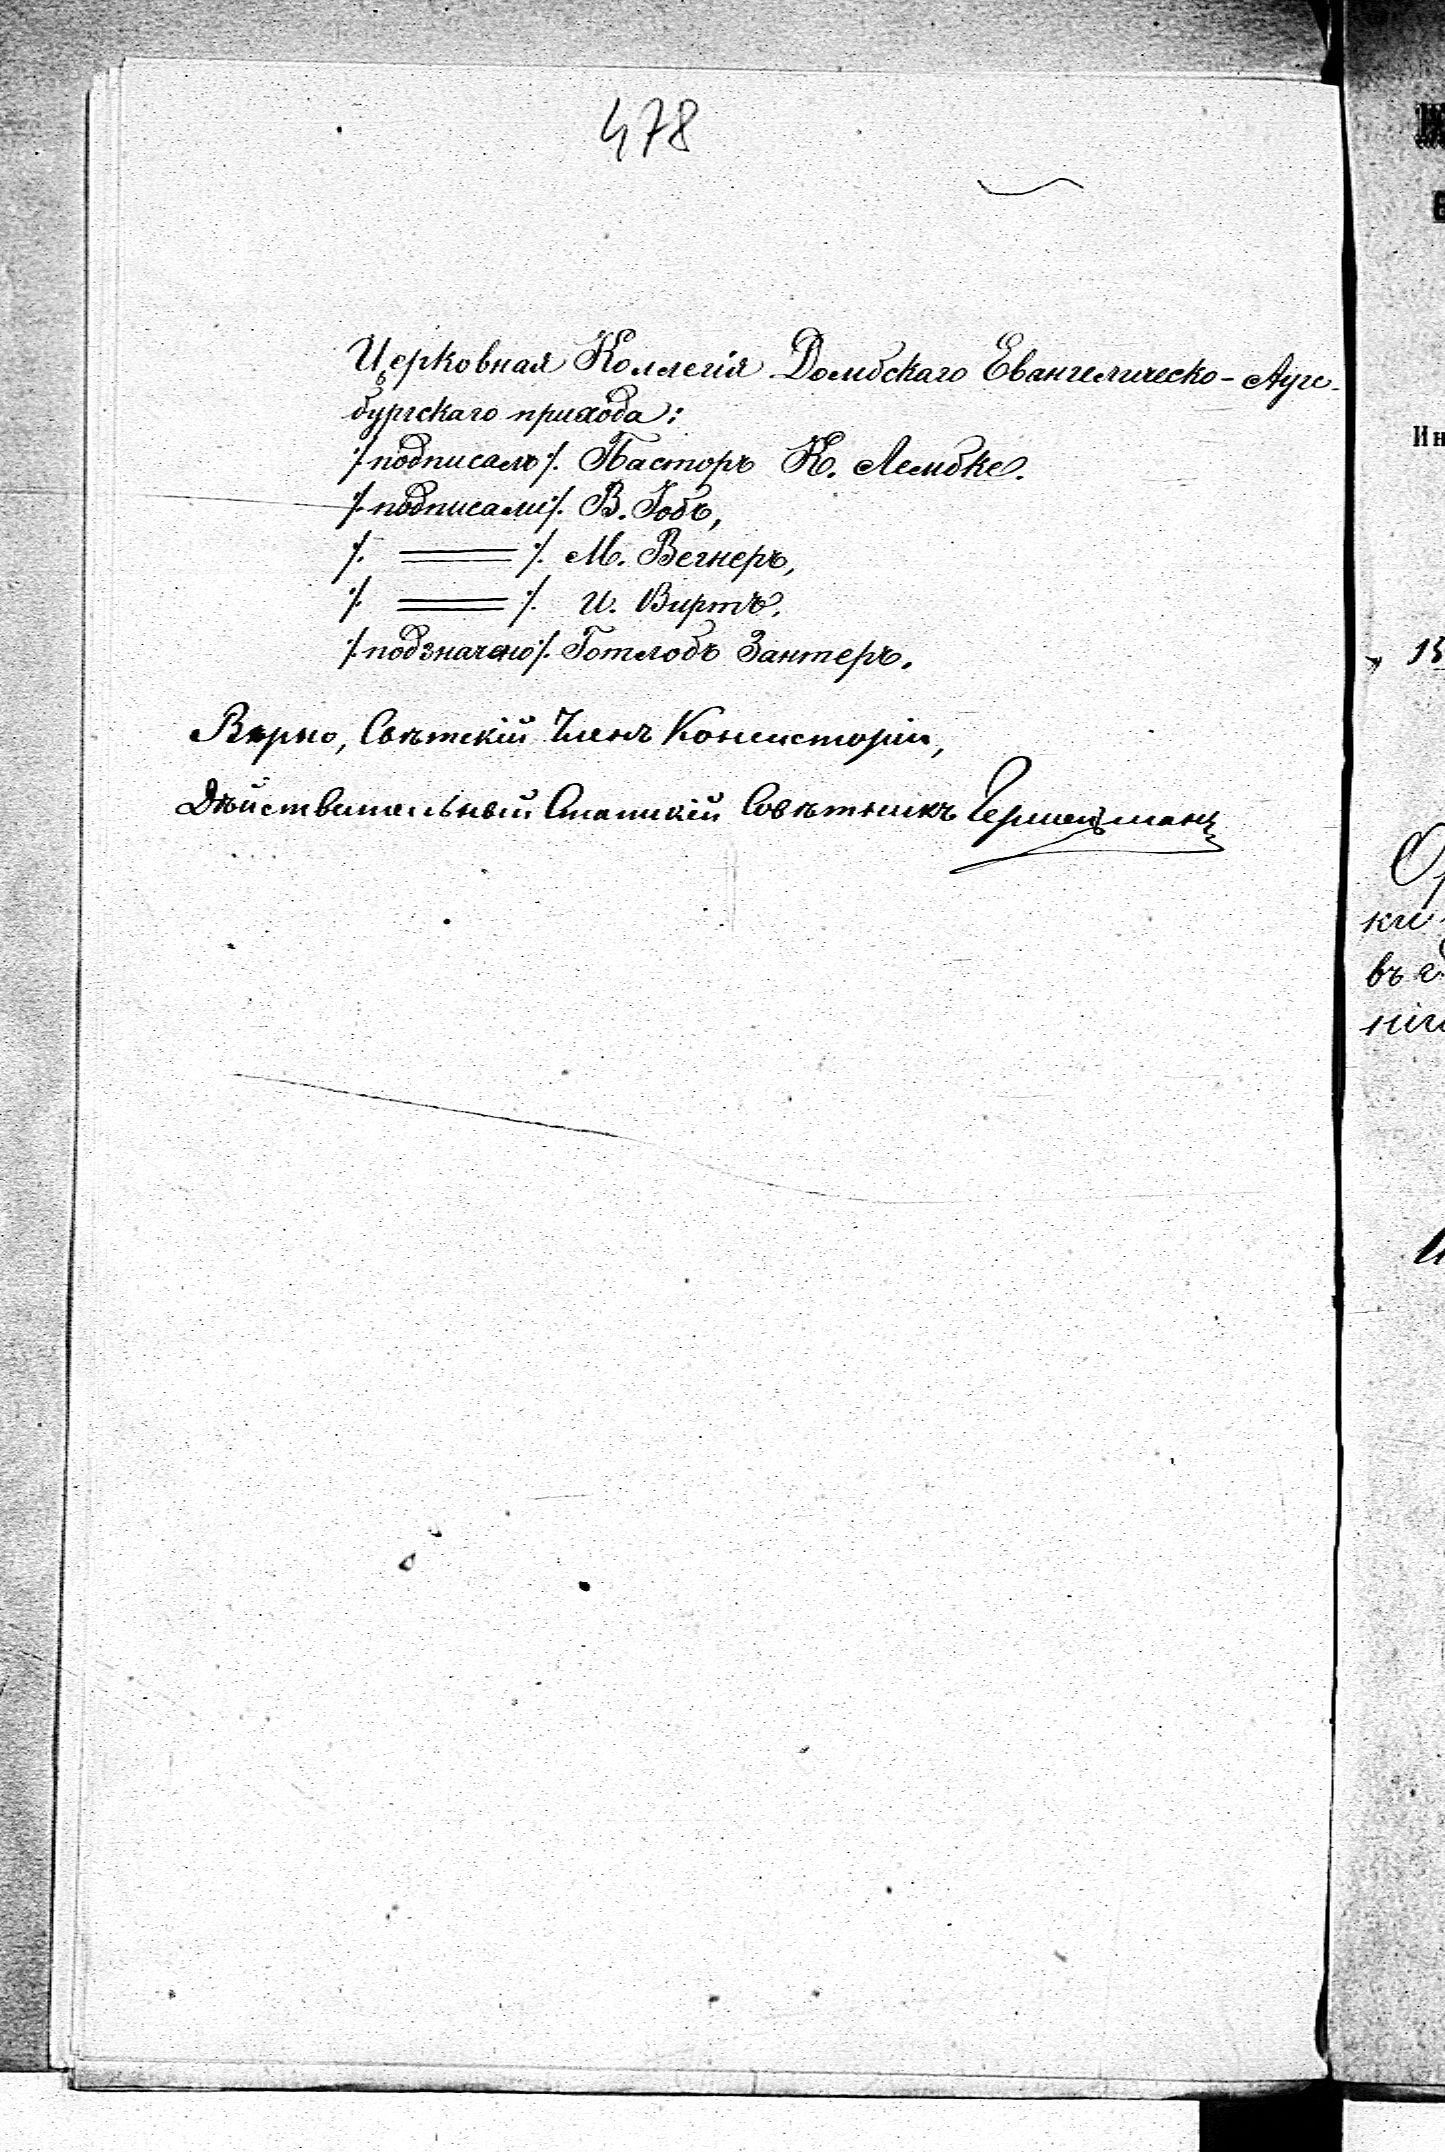 478
Церковная Коллегія Домбскаго Евангелическо-Аугс-
бургскаго прихода:
/:подписалъ:/ Пасторъ К. Лембке.
/:подписали:/ В. Гобъ,
/: ═══ :/ М. Вегнеръ,
/: ═══ :/ И. Виртъ,
/:подзначено:/ Готлобъ Зантеръ.
Вѣрно, Свѣтскій Членъ Консисторіи,
Дѣйствительный Статскій Совѣтникъ
Ин
въ